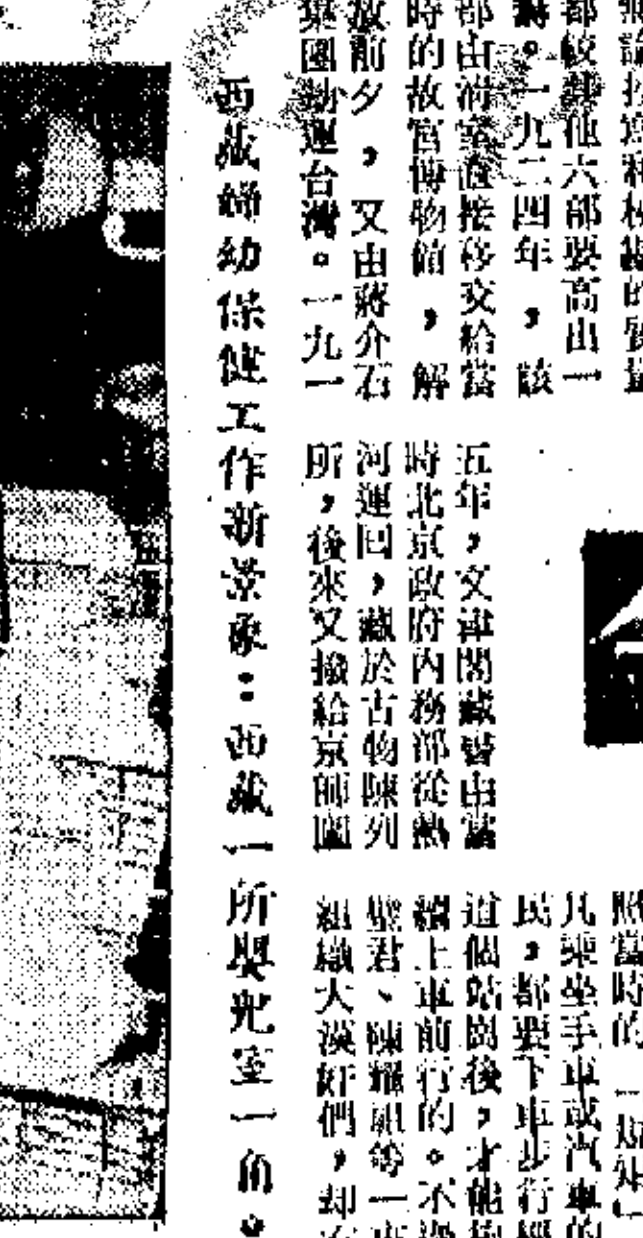 都較其他六部要高出一
。一九二四年,該
部由清室直接移交給當
時的故宮博物館,解
放前夕,又由蔣介石
集團劫運台灣。一九一
五年,文津閣藏書由當
時北京政府內務部從熱
河運囘,藏於古物陳列
所,後來又撥給京師圖
照當時的
凡乘坐手車或汽車的
民,都要下車步行
這個站崗後,才能
續上車前行的。不
璧君、陳耀祖等一
組織大漢奸們,却
西藏婦幼保健工作新景象:西藏一所嬰兒室一角。